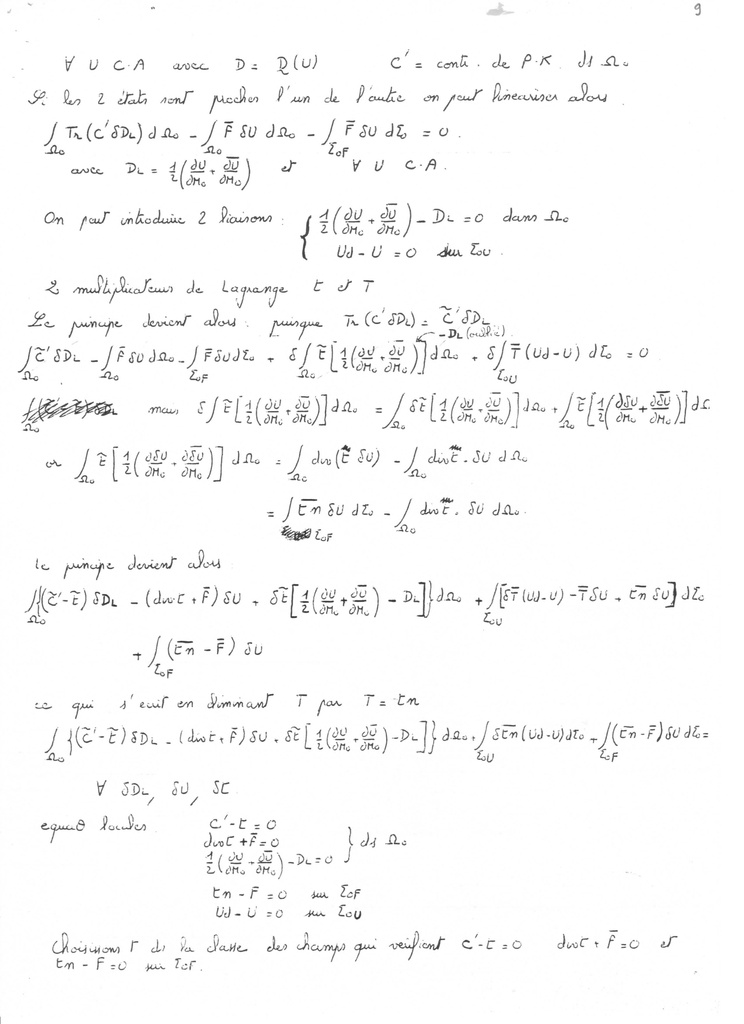 9
∀ U C.A avec D = D(U) C' = contr. de P.K ds Ω₀
Si les 2 états sont proches l'un de l'autre on peut linéariser alors
∫_Ω₀ Tr(C'δD_L) dΩ₀ - ∫_Ω₀ F̄ δU dΩ₀ - ∫_Σ₀F F̄ δU dΣ₀ = 0.
avec D_L = 1/2(∂U/∂M₀ + \overline{∂U}/∂M₀) et ∀ U C.A.
On peut introduire 2 liaisons : { 1/2(∂U/∂M₀ + \overline{∂U}/∂M₀) - D_L = 0 dans Ω₀
Ud - U = 0 sur Σ₀U.
2 multiplicateurs de Lagrange t et T
Le principe devient alors : puisque Tr(C'δD_L) = C̃'δD_L
- D_L (oublié)
∫_Ω₀ C̃'δD_L - ∫_Ω₀ F̄ δU dΩ₀ - ∫_Σ₀F F̄ δU dΣ₀ + δ∫_Ω₀ t̃[1/2(∂U/∂M₀ + \overline{∂U}/∂M₀)] dΩ₀ + δ∫_Σ₀U T̄(Ud-U) dΣ₀ = 0
mais δ∫ t̃[1/2(∂U/∂M₀ + \overline{∂U}/∂M₀)] dΩ₀ = ∫_Ω₀ δt̃[1/2(∂U/∂M₀ + \overline{∂U}/∂M₀)] dΩ₀ + ∫_Ω₀ t̃[1/2(∂δU/∂M₀ + \overline{∂δU}/∂M₀)] dΩ
or ∫_Ω₀ t̃[1/2(∂δU/∂M₀ + \overline{∂δU}/∂M₀)] dΩ₀ = ∫_Ω₀ div(t̃ δU) - ∫_Ω₀ div t. δU dΩ₀
= ∫_Σ₀F \overline{tn} δU dΣ₀ - ∫_Ω₀ div t. δU dΩ₀.
le principe devient alors
∫_Ω₀ {(C̃'-t̃) δD_L - (div t + F̄) δU + δt̃[1/2(∂U/∂M₀ + \overline{∂U}/∂M₀) - D_L]} dΩ₀ + ∫_Σ₀U [δT̄(Ud-U) - T̄δU + \overline{tn} δU] dΣ₀
+ ∫_Σ₀F (\overline{tn} - F̄) δU
ce qui s'écrit en éliminant T par T = tn
∫_Ω₀ {(C̃'-t̃) δD_L - (div t + F̄) δU + δt̃[1/2(∂U/∂M₀ + \overline{∂U}/∂M₀) - D_L]} dΩ₀ + ∫_Σ₀U δ\overline{tn}(Ud-U) dΣ₀ + ∫_Σ₀F (\overline{tn}-F̄) δU dΣ₀ =
∀ δD_L, δU, δt
locales C' - t = 0
div t + F̄ = 0
1/2(∂U/∂M₀ + \overline{∂U}/∂M₀) - D_L = 0 } ds Ω₀
tn - F̄ = 0 sur Σ₀F
Ud - U = 0 sur Σ₀U
Choisissons t ds la classe des champs qui vérifient C' - t = 0 div t + F̄ = 0 et
tn - F = 0 sur Σ₀F.